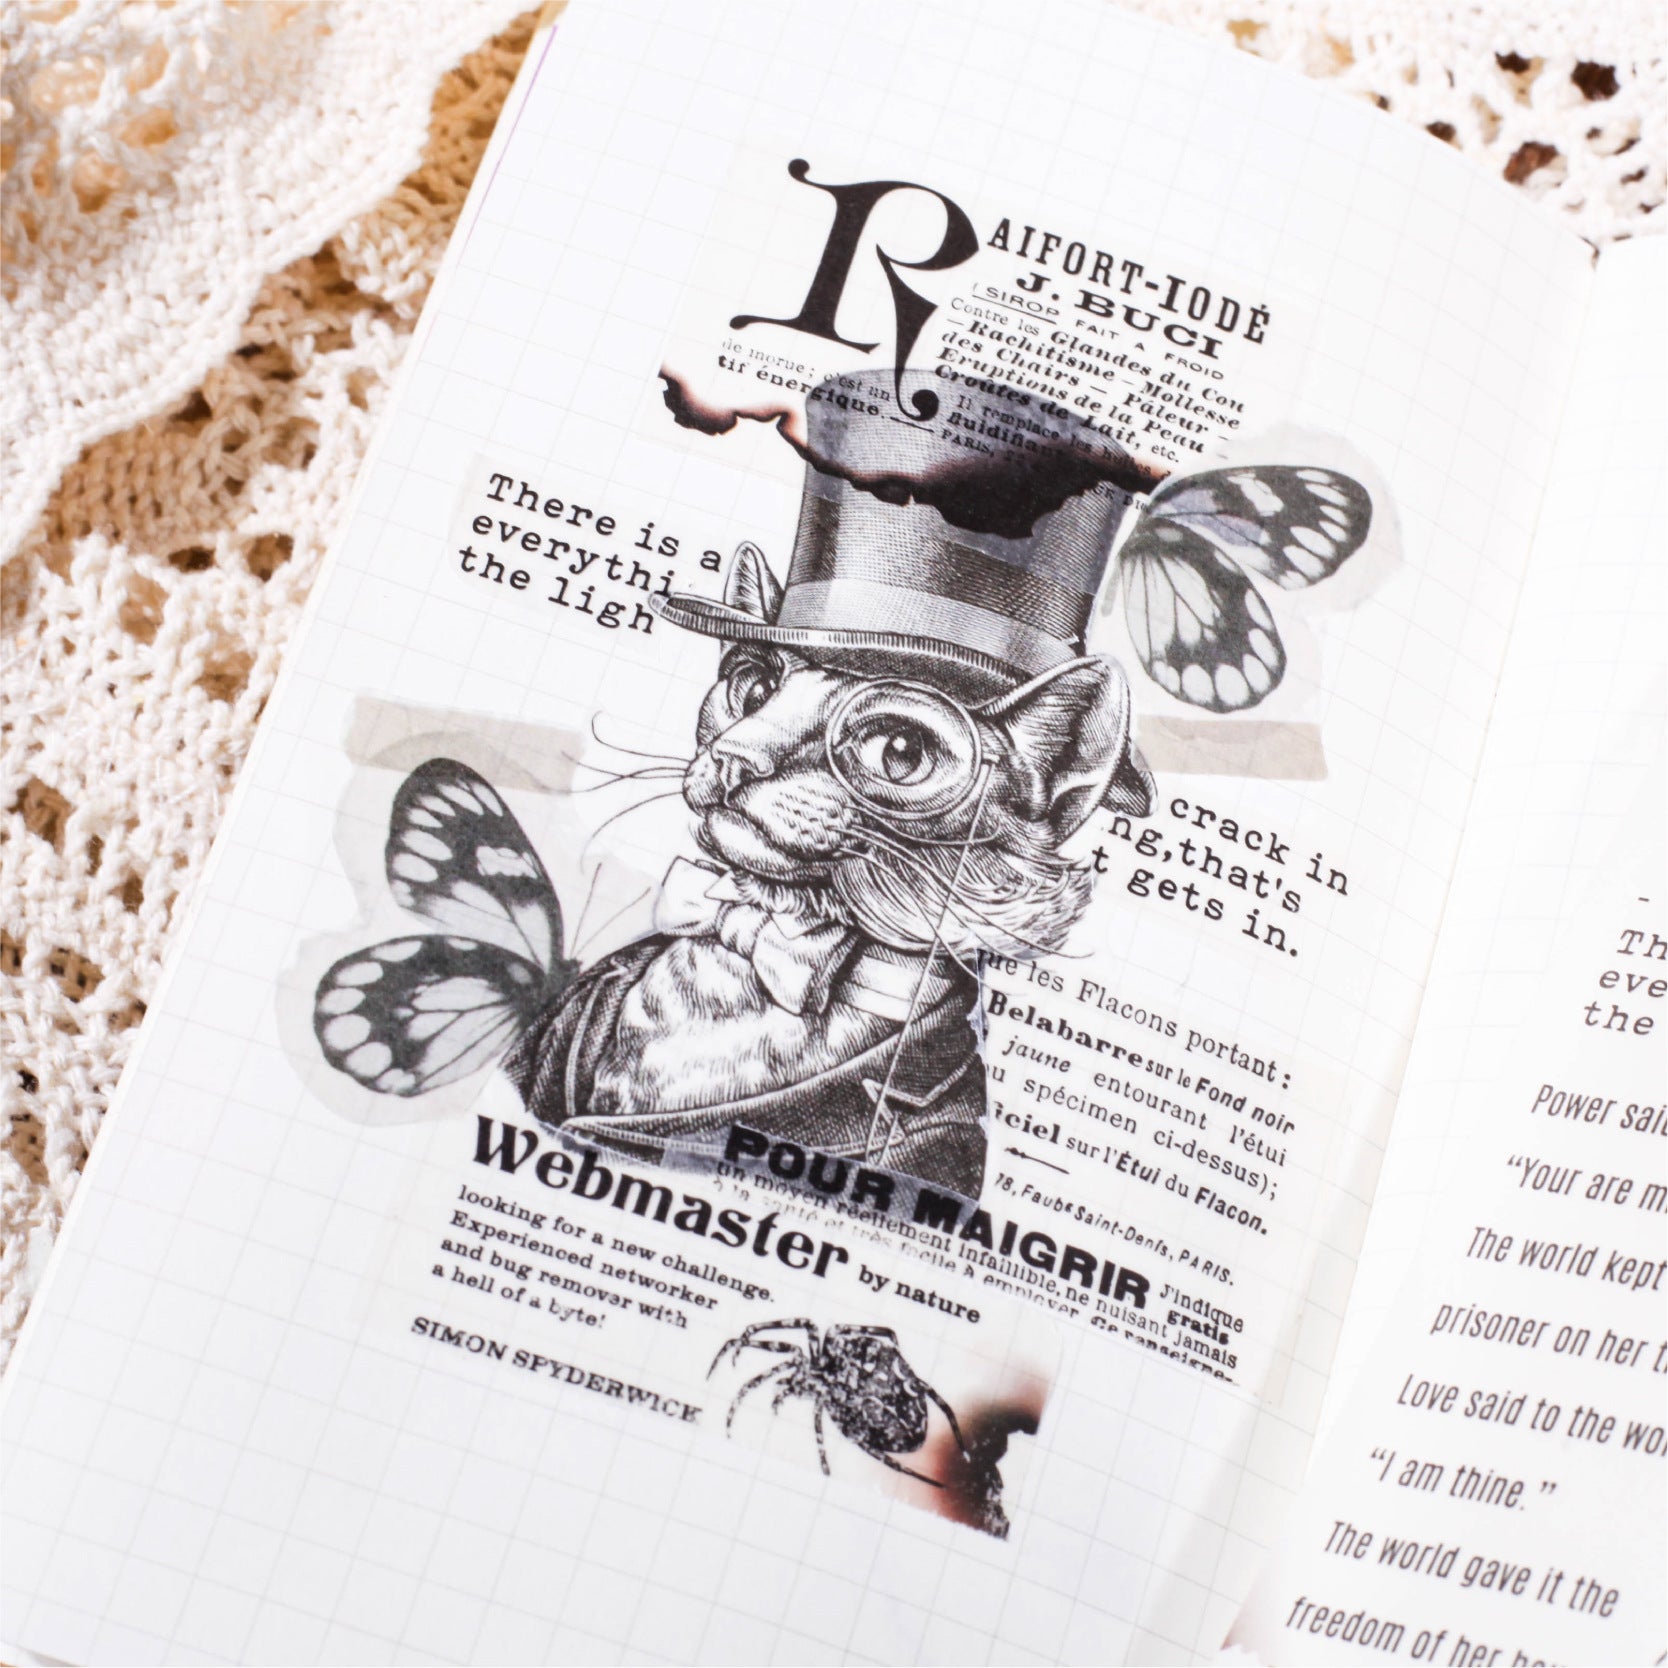 RAIFORT-IODÉ
J. BUCI
SIROP FAIT A FROID
Contre les Glandes du Cou
— Rachitisme — Mollesse
des Chairs — Pâleur —
Eruptions de la Peau —
Croûtes de Lait, etc.
Il remplace les huiles
de morue; c'est un fluidifiant
tif énergique. — PARIS,
There is a crack in
everythi ng,that's
the ligh t gets in.
que les Flacons portant:
Belabarre sur le Fond noir
jaune entourant l'étui
u spécimen ci-dessus);
ficiel sur l'Étui du Flacon.
78, Faubg Saint-Denis, PARIS.
POUR MAIGRIR J'indique gratis
un moyen réellement infaillible, ne nuisant jamais
à la santé et très facile à employer. Ce renseigne-
Webmaster by nature
looking for a new challenge.
Experienced networker
and bug remover with
a hell of a byte!
SIMON SPYDERWICK
-
Th
eve
the
Power said
"Your are m
The world kept
prisoner on her t
Love said to the wo
"I am thine."
The world gave it the
freedom of her